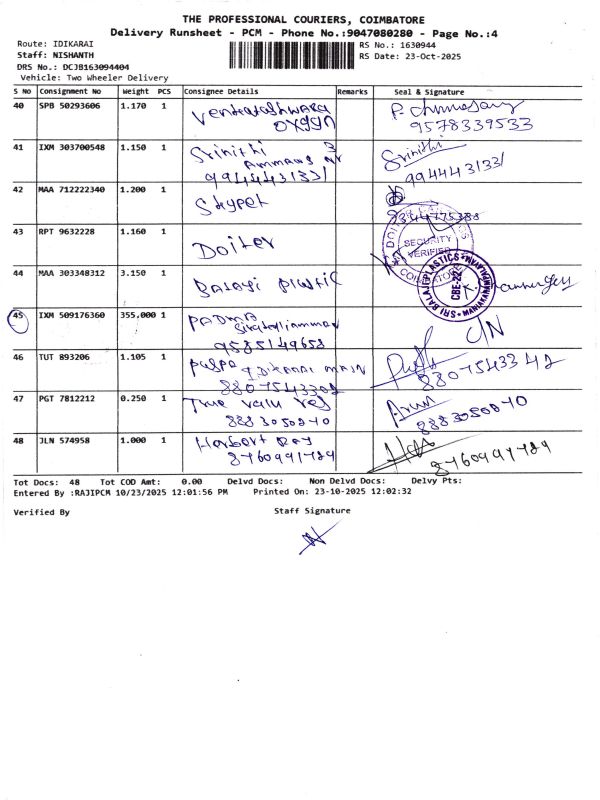 THE PROFESSIONAL COURIERS, COIMBATORE
Delivery Runsheet - PCM - Phone No.:9047080280 - Page No.:4
Route: IDIKARAI
RS No.: 1630944
Staff: NISHANTH
RS Date: 23-Oct-2025
DRS No.: DCJB163094404
Vehicle: Two Wheeler Delivery
S No Consignment No Weight PCS Consignee Details Remarks Seal & Signature
40 SPB 50293606 1.170 1 Venkatashwara
oxygn
9578339533
41 IXM 303700548 1.150 1 Srinithi
Ammans
9944431331
Srinithi
9944431331
42 MAA 712222340 1.200 1 Skyper
9344775388
43 RPT 9632228 1.160 1 Doiter
SECURITY
VERIFIED
COIMBATORE
44 MAA 303348312 3.150 1 Balaji plastic
SRI BALAJI PLASTICS
CBE-22
45 IXM 509176360 355.000 1 PADMA
9585149658
46 TUT 893206 1.105 1 puspa Idikarai main
8807543342
8807543342
47 PGT 7812212 0.250 1 True Valu Res
8883050840
Arun
8883050840
48 JLN 574958 1.000 1 Herbert Ray
8760991789
8760991789
Tot Docs: 48 Tot COD Amt: 0.00 Delvd Docs: Non Delvd Docs: Delvy Pts:
Entered By :RAJIPCM 10/23/2025 12:01:56 PM Printed On: 23-10-2025 12:02:32
Verified By Staff Signature